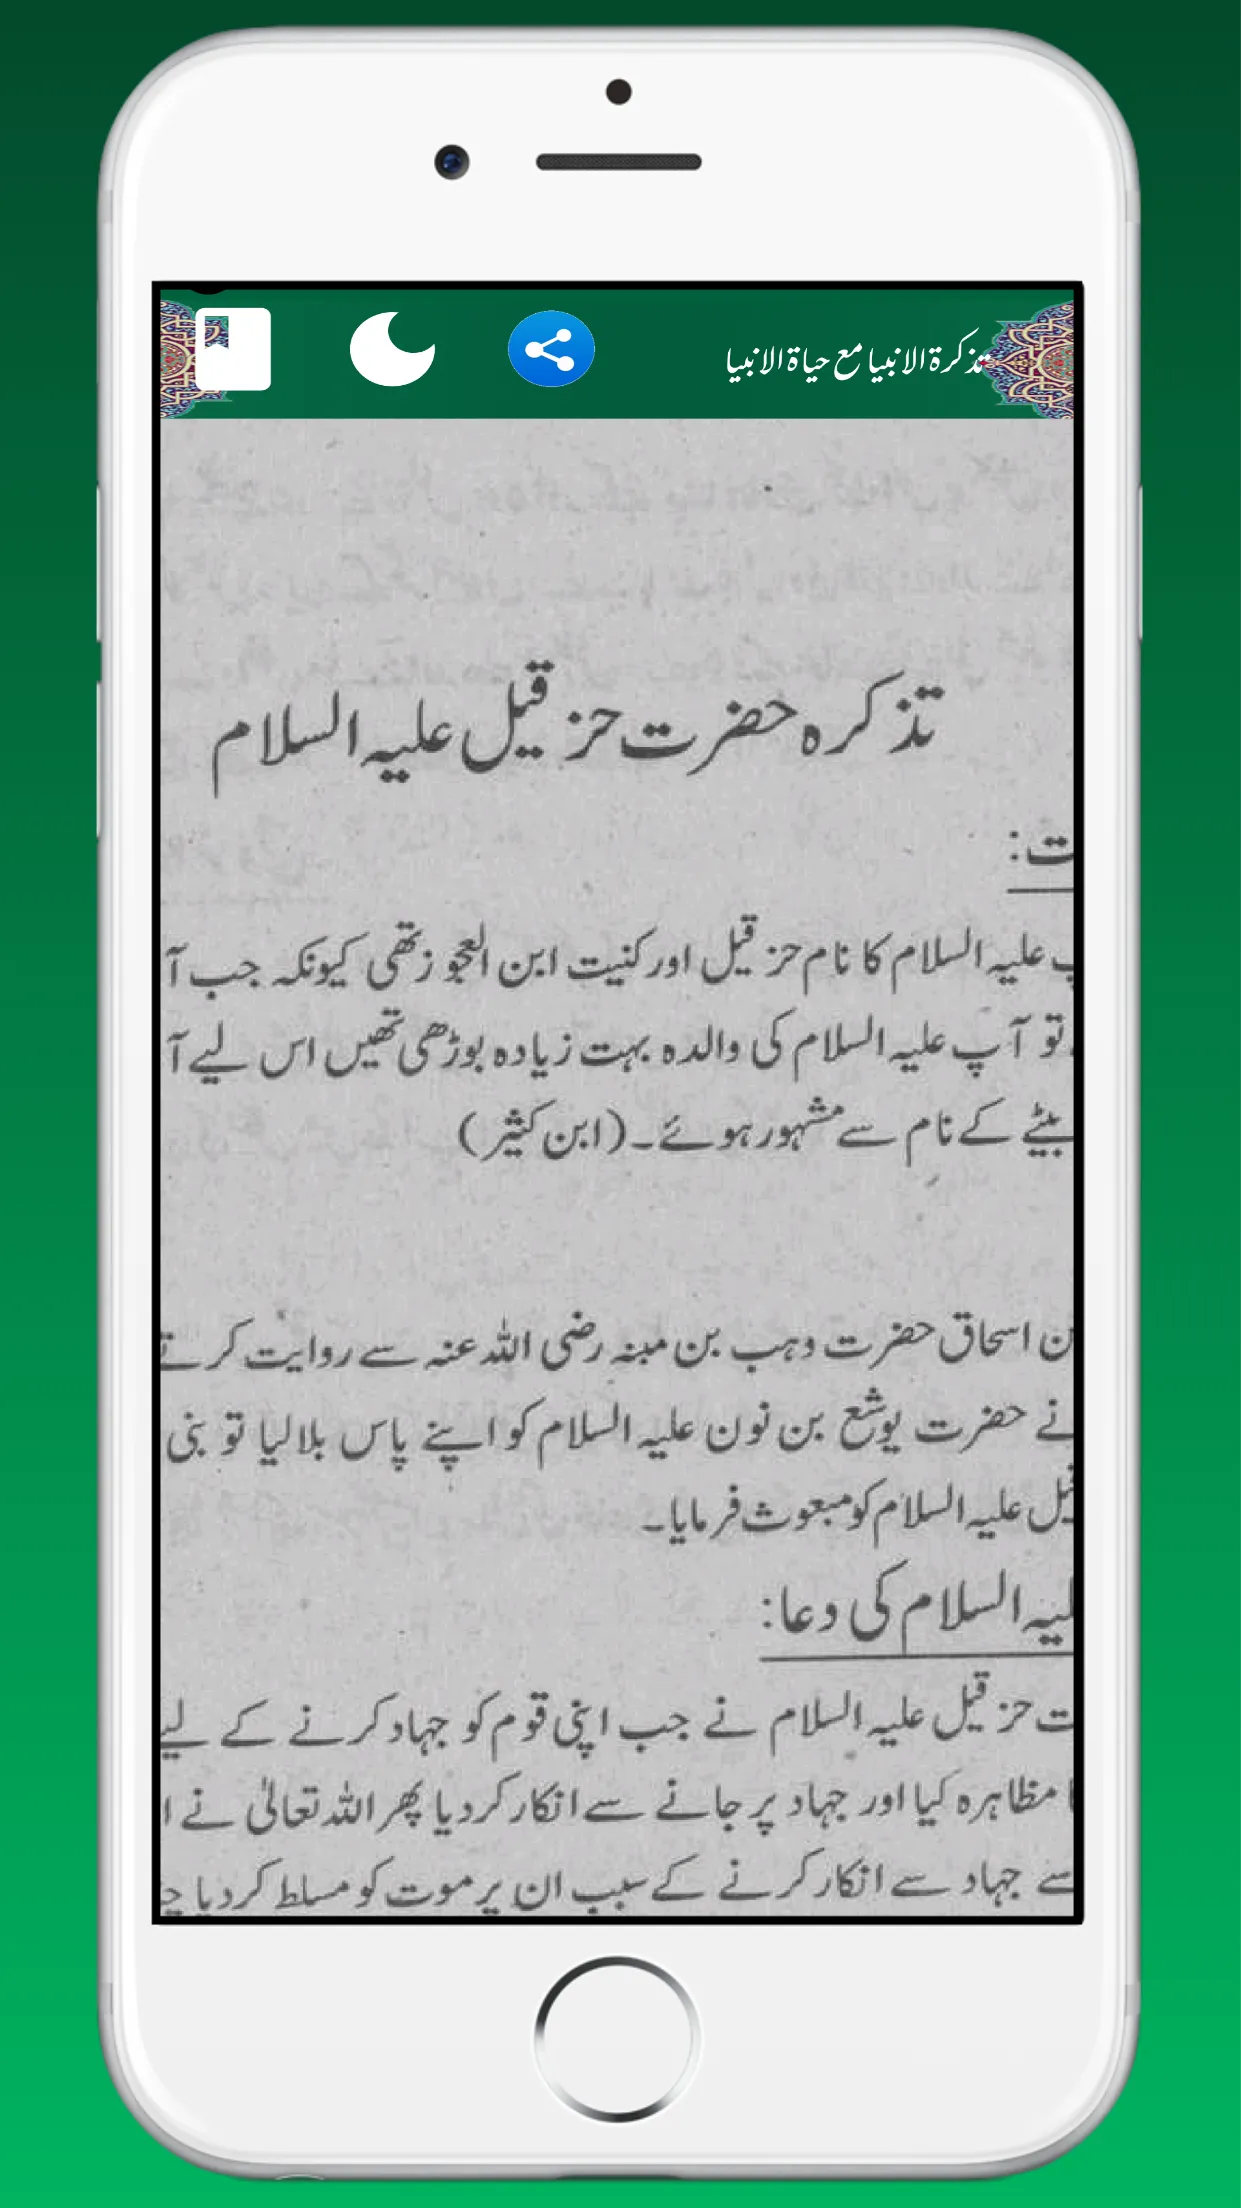 تذکرۃ الانبیا مع حیاۃ الانبیا
تذکرہ حضرت حزقیل علیہ السلام
ت:
پ علیہ السلام کا نام حزقیل اور کنیت ابن العجوز تھی کیونکہ جب آ
تو آپ علیہ السلام کی والدہ بہت زیادہ بوڑھی تھیں اس لیے آ
بیٹے کے نام سے مشہور ہوئے۔ (ابن کثیر)
ن اسحاق حضرت وہب بن منبہ رضی اللہ عنہ سے روایت کرتے
نے حضرت یوشع بن نون علیہ السلام کو اپنے پاس بلا لیا تو بنی
قیل علیہ السلام کو مبعوث فرمایا۔
لیہ السلام کی دعا:
ت حزقیل علیہ السلام نے جب اپنی قوم کو جہاد کرنے کے لیے
ا مظاہرہ کیا اور جہاد پر جانے سے انکار کر دیا پھر اللہ تعالیٰ نے ا
سے جہاد سے انکار کرنے کے سبب ان پر موت کو مسلط کر دیا